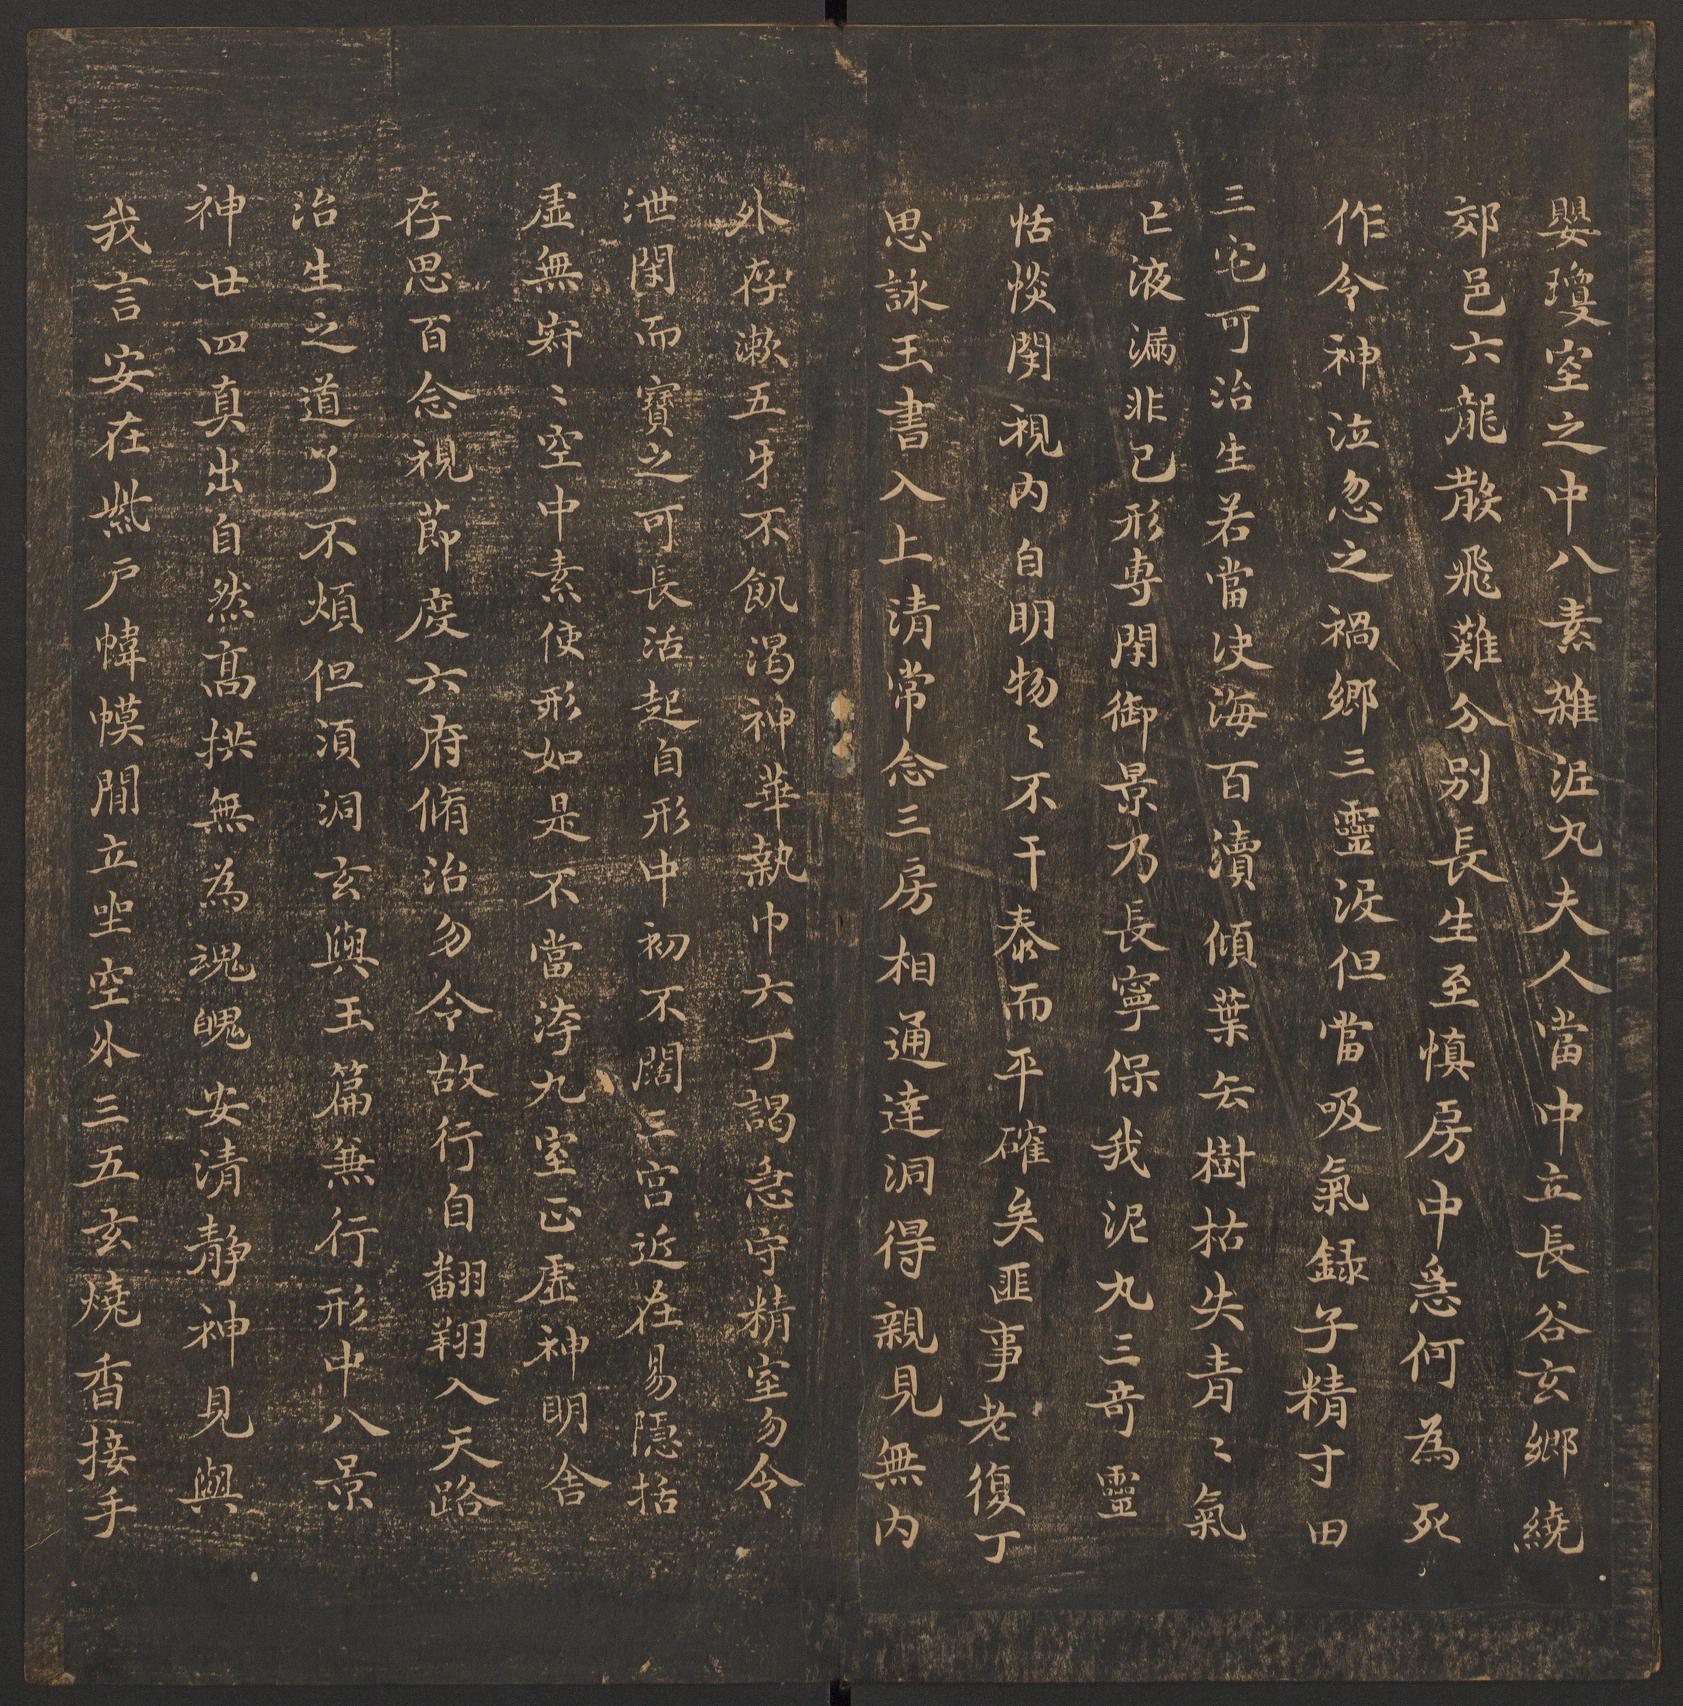 嬰瓊室之中八素雜泥丸夫人當中立長谷玄鄉繞
郊邑六龍散飛難分別長生至慎房中急何為死
作令神泣忽之禍鄉三靈沒但當吸氣録子精寸田
三宅可治生若當決海百瀆傾葉去樹枯失青々氣
亡液漏非己形專閉御景乃長寧保我泥丸三奇靈
恬惔閑視内自明物々不干泰而平確矣匪事老復丁
思詠玉書入上清常念三房相通達洞得親見無内
外存漱五牙不飢渴神華執巾六丁謁急守精室勿令
泄閑而寶之可長活起自形中初不闊三宮近在易隱括
虚無寂々空中素使形如是不當洿九室正虚神明舍
存思百念視節度六府脩治勿令故行自翻翔入天路
治生之道了不煩但湏洞玄與玉篇兼行形中八景
神廿四真出自然高拱無為魂魄安清静神見與
我言安在紫戸幃幙閒立坐空外三五玄燒香接手